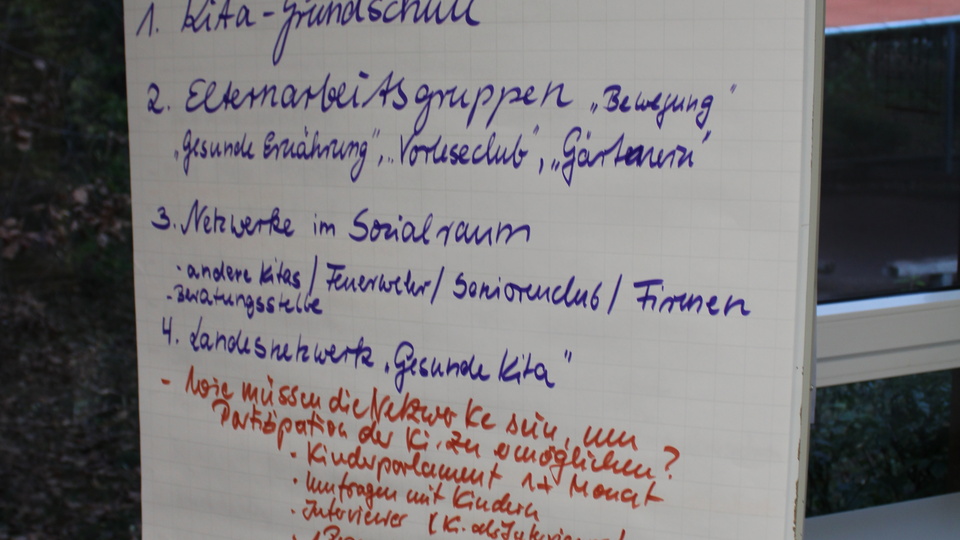 1. Kita-Grundschule
2. Elternarbeitsgruppen „Bewegung"
„gesunde Ernährung", „Vorleseclub", „Gärtnern"
3. Netzwerke im Sozialraum
· andere Kitas / Feuerwehr / Seniorenclub / Firmen
- Beratungsstelle
4. Landesnetzwerk „Gesunde Kita"
- Wie müssen die Netzwerke sein, um
Partizipation der Ki. zu ermöglichen?
· Kinderparlament 1x Monat
· Umfragen mit Kindern
· Interviewer (K. als